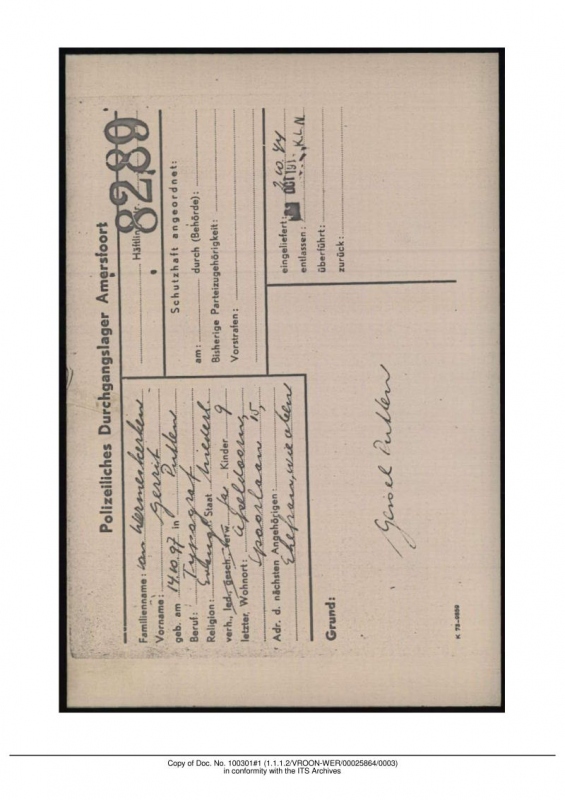 Polizeiliches Durchgangslager Amersfoort
8289
Familienname: van Wermeskerken
Häftling
Vorname: Gerrit
geb. am 14.10.97 in Putten
Beruf: Typograf
Religion: Evang. Staat Niederl
verh., led. gesch. verw. Ja Kinder 9
letzter, Wohnort: Apeldoorn,
Spoorlaan 15,
Adr. d. nächsten Angehörigen:
Ehefrau, wie oben
Schutzhaft angeordnet:
am: durch (Behörde):
Bisherige Parteizugehörigkeit:
Vorstrafen:
eingeliefert: 2.10.44
entlassen: OCT 191 K.L.N
überführt:
zurück:
Grund:
Geisel Putten
K 73-0859
Copy of Doc. No. 100301#1 (1.1.1.2/VROON-WER/00025864/0003)
in conformity with the ITS Archives